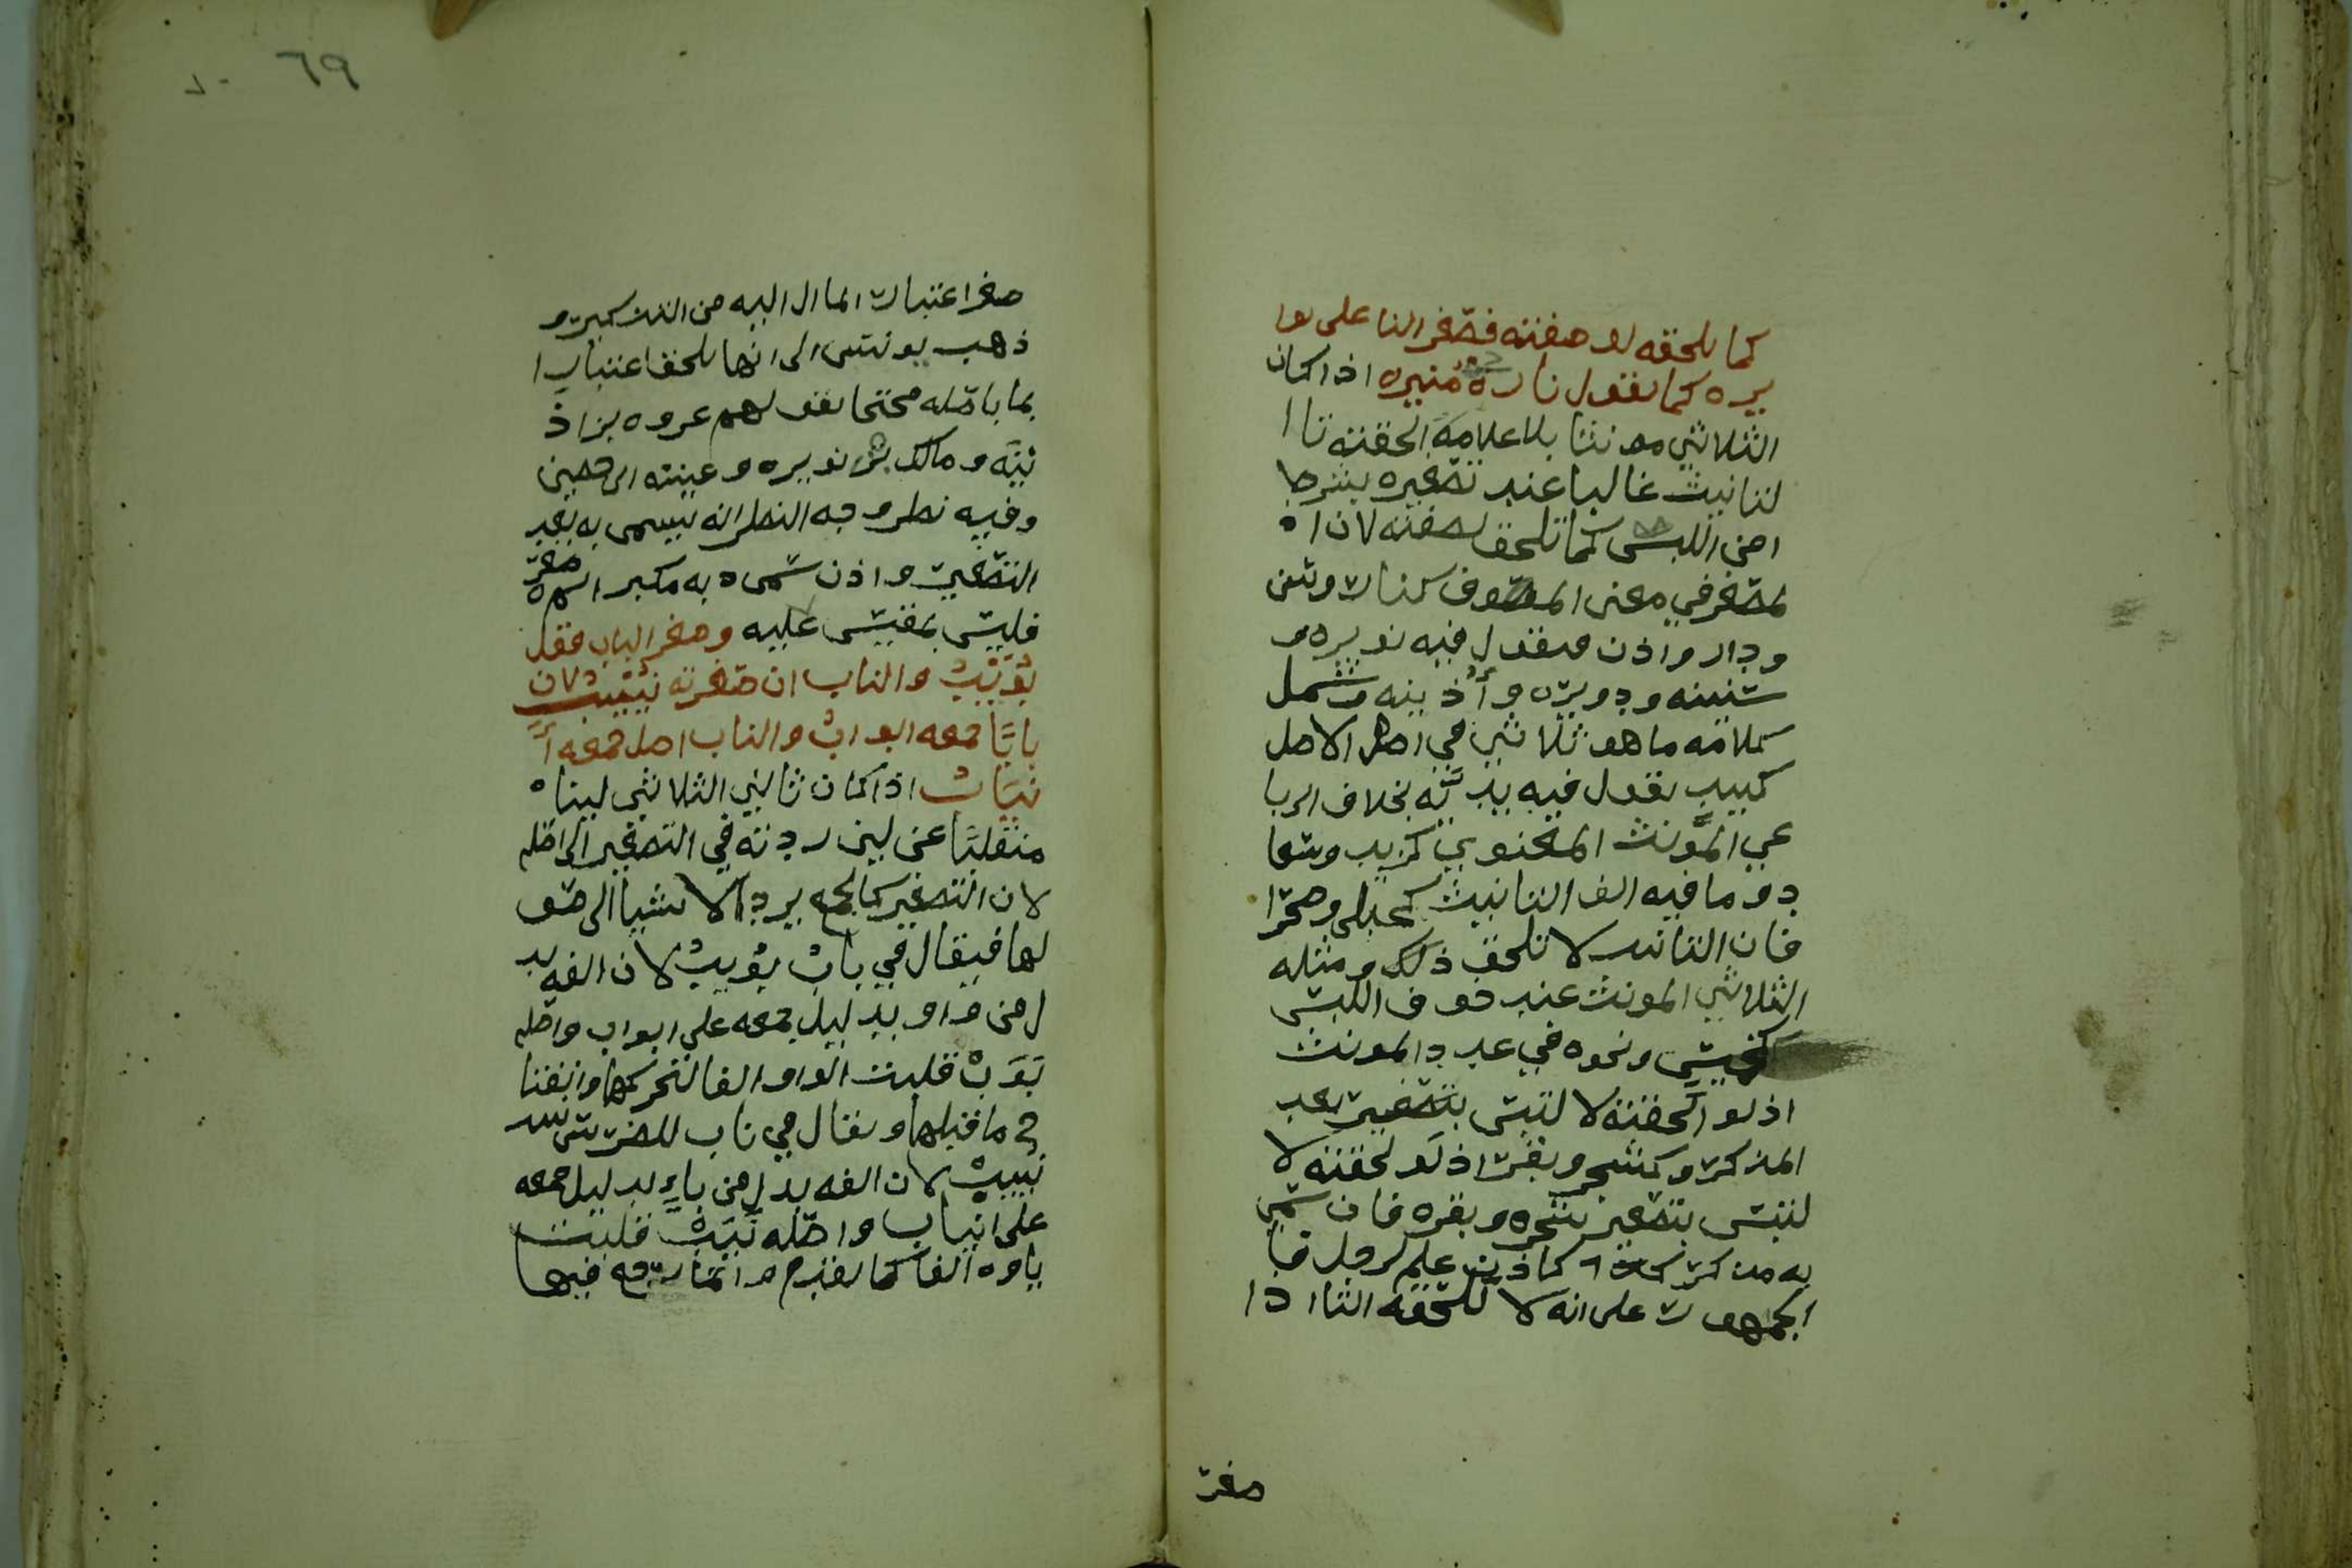 كما تلحقه لو صفته فصغر النار على نوا
يره كما تقول ناره منيره اذا كان
الثلاثي مونثا بلا علامة الحقته تا ا
لتانيث غالبا عند تصغيره بشرط
امن اللبس كما تلحق لصفته لان ا
لمصغر في معنى الموصوف كنار وسن
ودار واذن فيقول فيه نويره و
سنينه ودويره وأُذينه وشمل
كلامه ما هو ثلاثي في الاصل
كبيد يقول فيه يديَّه بخلاف الربا
عي المؤنث المعنوي كزينب وسعا
د وما فيه الف التانيث كحبلى وصحرا
فان التا لا تلحق ذلك ومثله
الثلاثي المونث عند خوف اللبس
كخمس ونحوه في عدد المونث
اذ لو الحقته لا لتبس بتصغير عدد
المذكر وكشجر وبقر اذ لو لحقته لا
لتبس بتصغير شجره وبقره فان سمي
به مذكر كاذن علم لرجل فا
لجمهور على انه لا تلحقه التا اذا
صغر
٦٩
٧٠
صغر اعتبارا لما ال اليه من التذكير و
ذهب يونس الى انها تلحقه اعتبارا
بما باصله محتجا بقولهم عروه بن اذ
ينه ومالك بن نويره وعيينه بن حصين
وفيه نظر وجه النظر انه يسمى به بعد
التصغير واذن سماه به مكبرا ثم صغر
فليس بمقيس عليه وصغر الباب فقل
بُوَيْبٌ والناب ان صغرته نُيَيْبٌ لان
بابًا جمعه ابوابٌ والناب اصل جمعه أَ
نيابٌ اذا كان ثاني الثلاثي لينا
منقلبا عن لين رددته في التصغير الى اصله
لان التصغير كالجمع يرد الاشيا الى اصو
لها فيقال في بابٌ بُويبٌ لان الفه بد
ل من واو بدليل جمعه على ابواب واصله
بَوَبٌ قلبت الواو الفا لتحركها وانفتا
ح ما قبلها ويقال في ناب للضرس
نُييبٌ لان الفه بدل من ياءٍ بدليل جمعه
على انياب واصله نَيَبٌ قلبت
ياوه الفا كما تقدم وانما رجع فيها